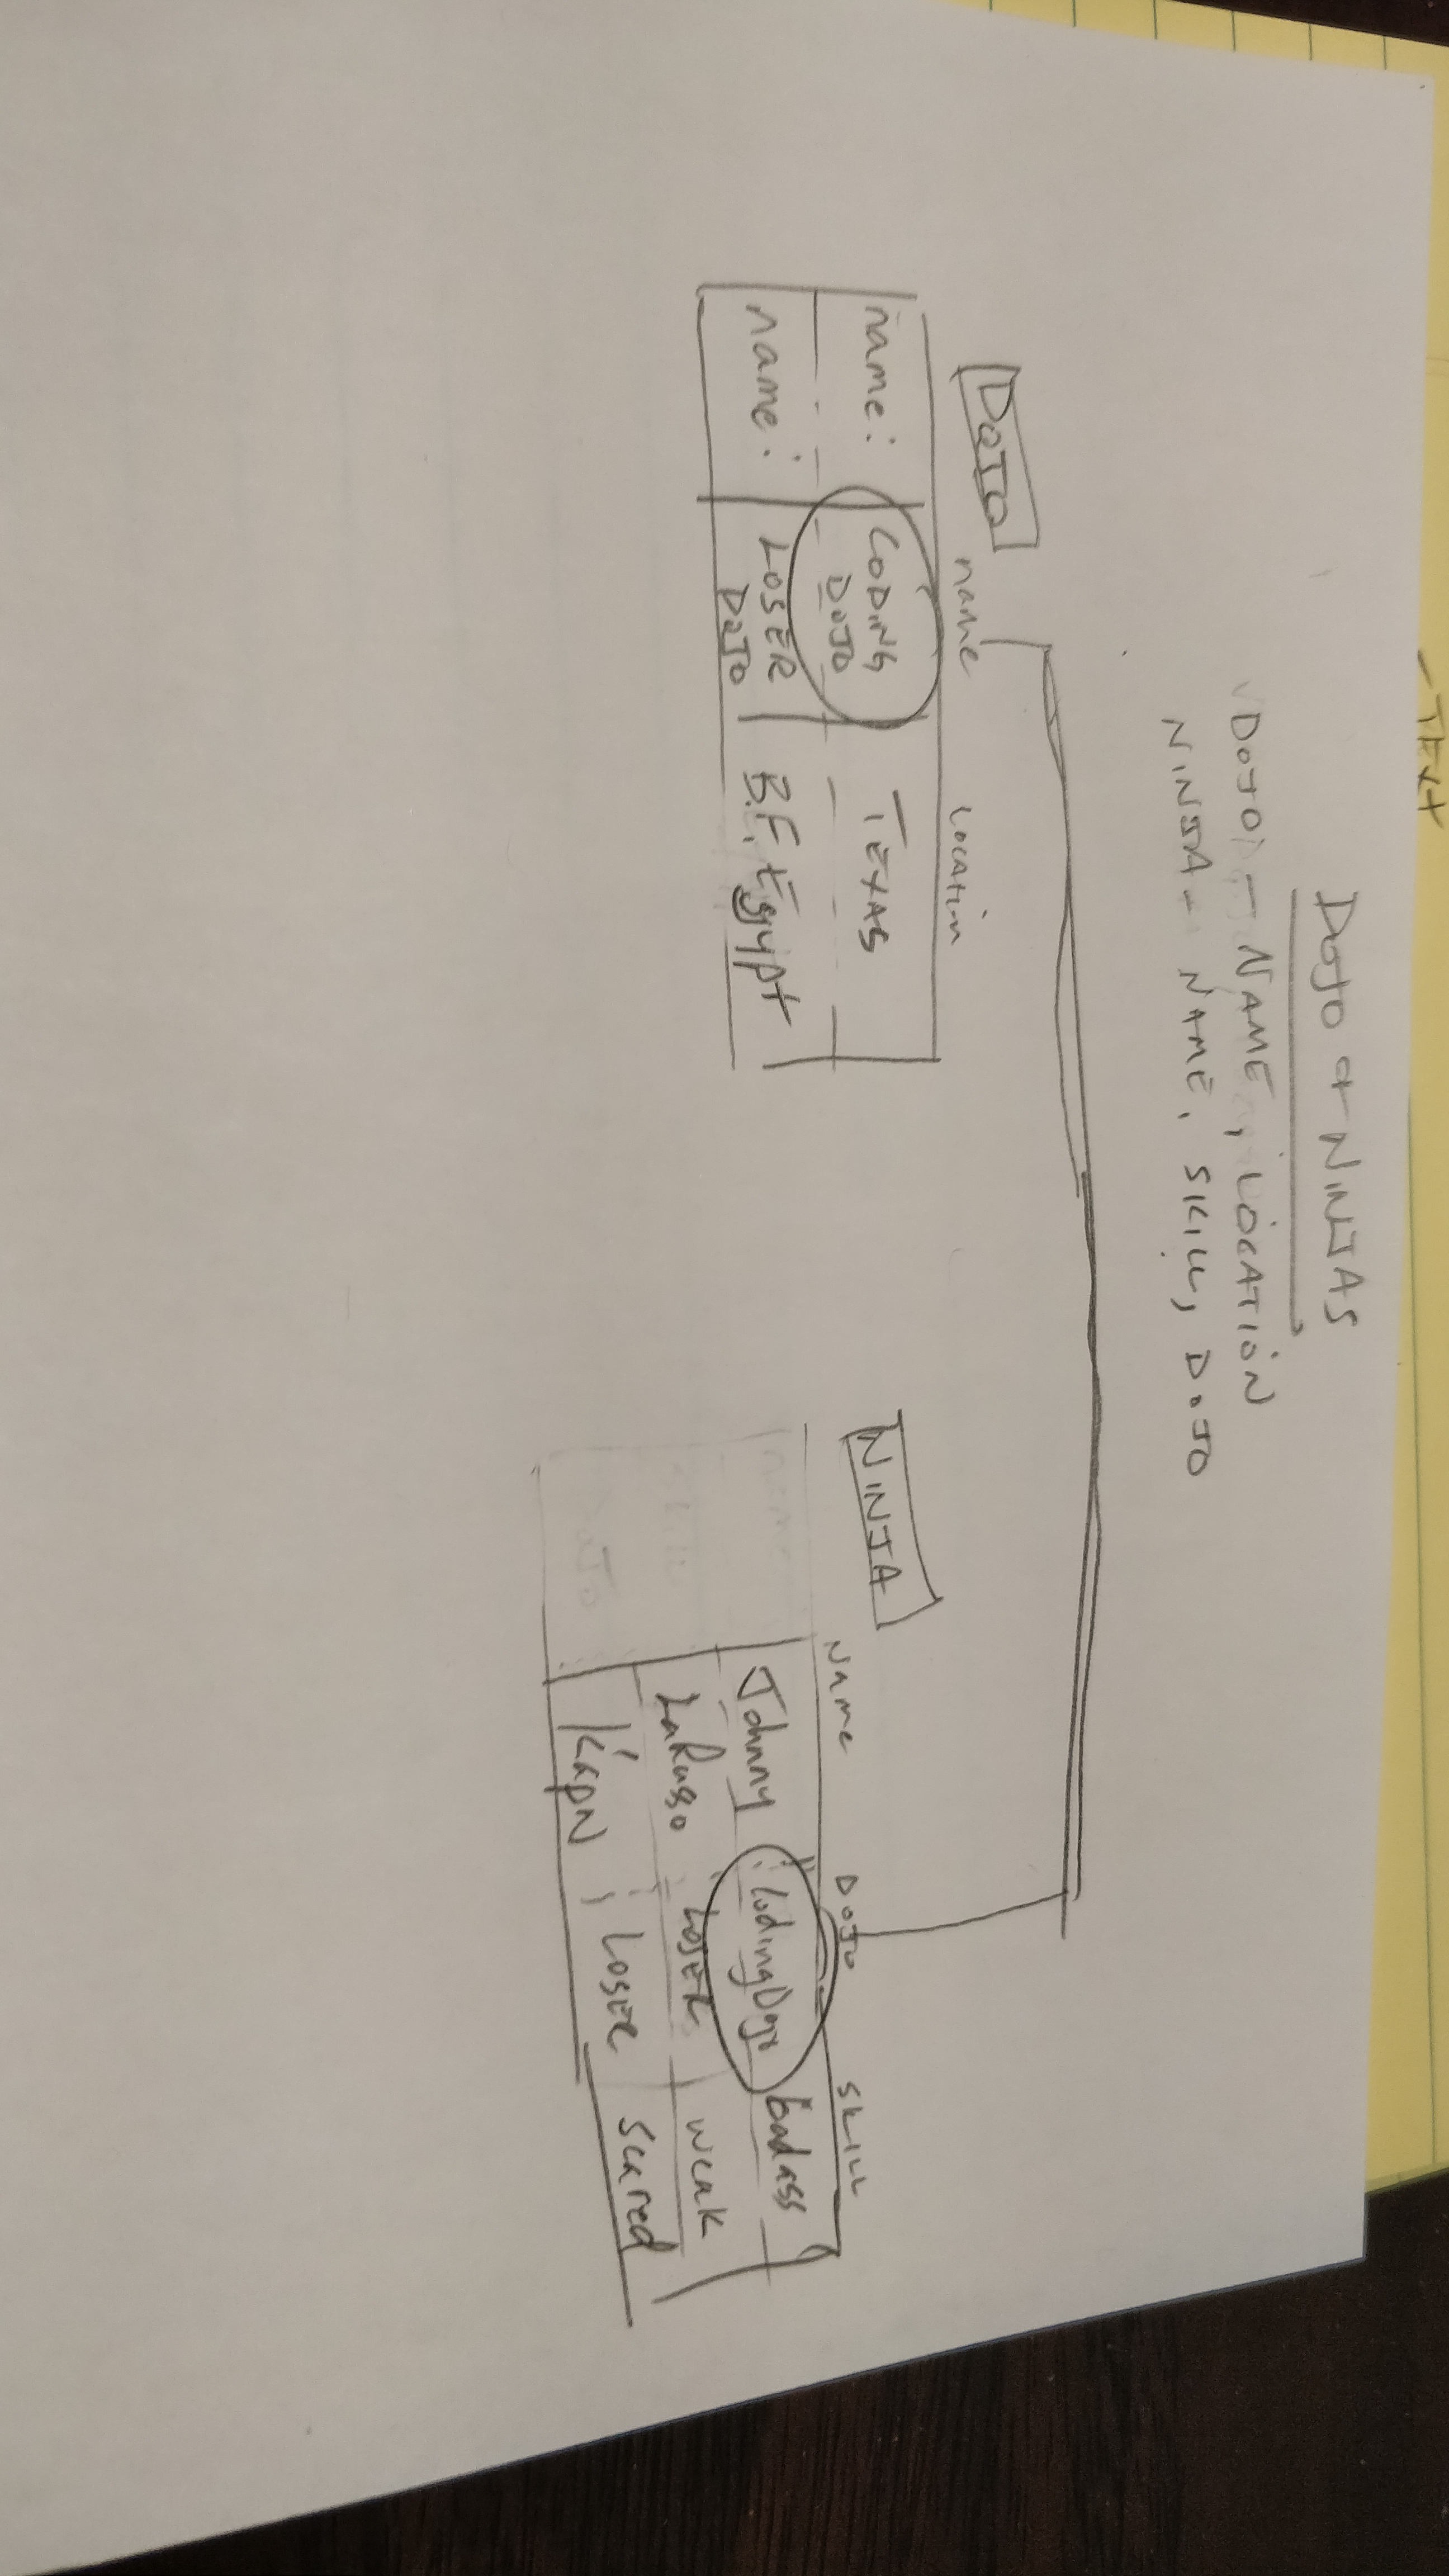 - TEXT
DOJO + NINJAS
DOJO - NAME, LOCATION
NINJA - NAME, SKILL, DOJO
DOJO
name Location
name: CODING DOJO TEXAS
name: LOSER DOJO B.F. Egypt
NINJA
Name DOJO SKILL
Johnny CodingDojo badass
LaRuso LOSER weak
LOSER scared